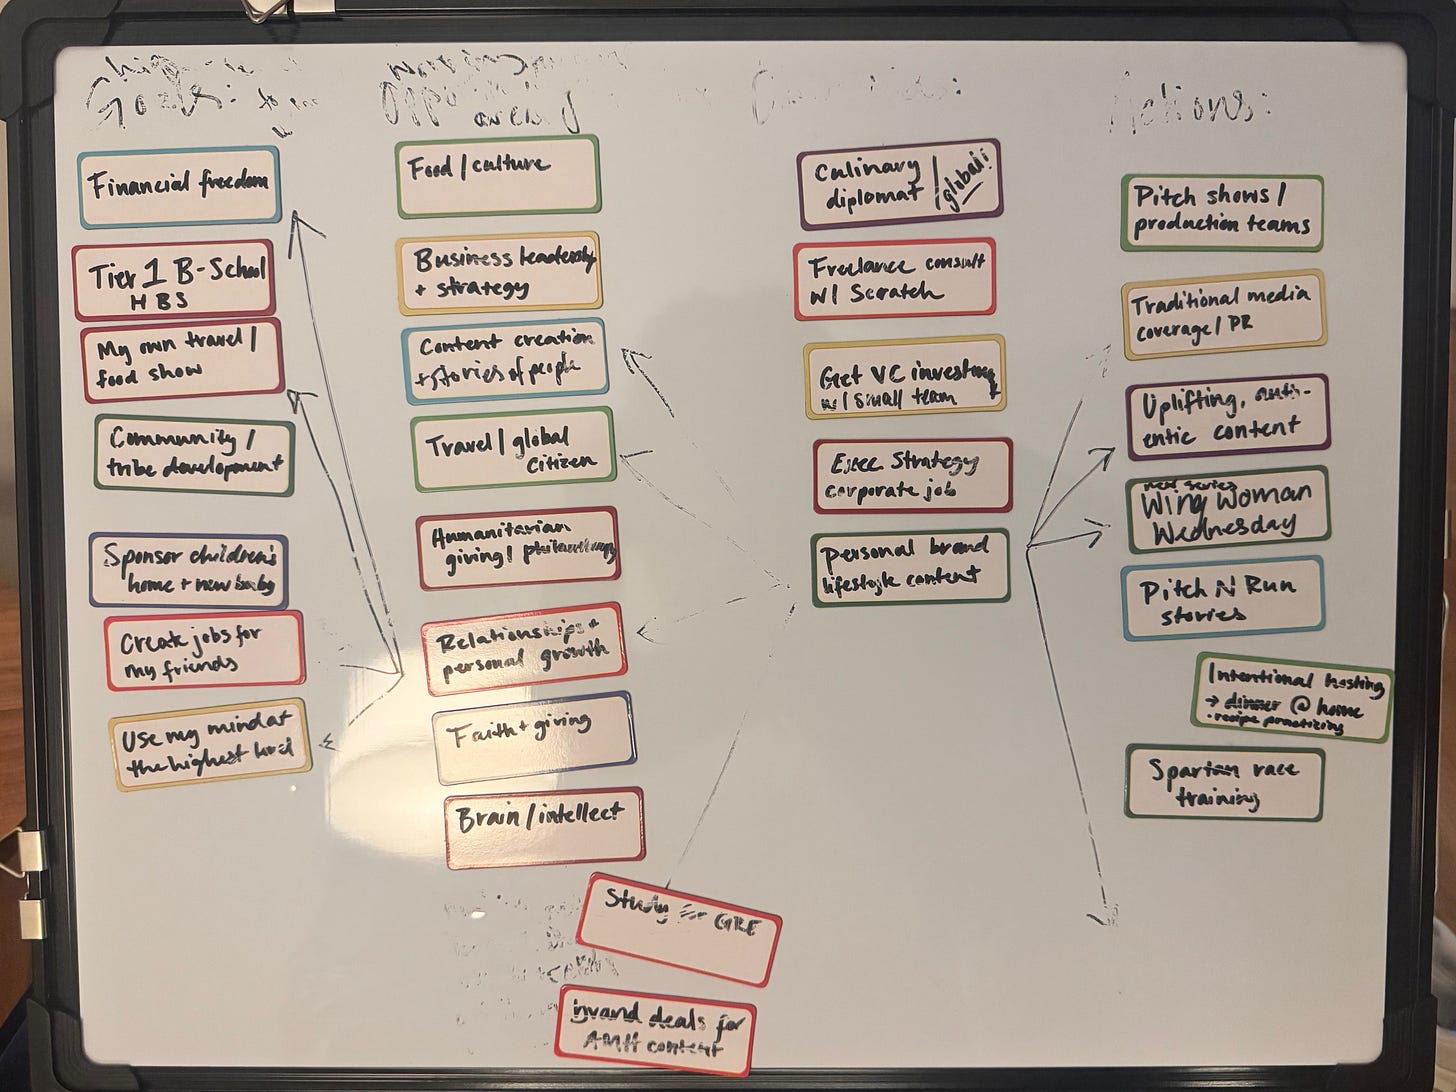 Goals:
Actions:
Financial freedom
Tier 1 B-School
HBS
My own travel /
food show
Community /
tribe development
Sponsor children's
home + new baby
Create jobs for
my friends
Use my mind at
the highest level
Food / culture
Business leadership
+ strategy
Content creation
+ stories of people
Travel / global
citizen
Humanitarian
giving / philanthropy
Relationships +
personal growth
Faith + giving
Brain / intellect
Study for GRE
inbound deals for
AMH content
Culinary
diplomat / global!
Freelance consult
w/ Scratch
Get VC investment
w/ small team
Exec Strategy
corporate job
Personal brand
lifestyle content
Pitch shows /
production teams
Traditional media
coverage / PR
Uplifting, auth-
entic content
next series
Wing Woman
Wednesday
Pitch N Run
stories
Intentional hosting
→ dinner @ home
• recipe
Spartan race
training